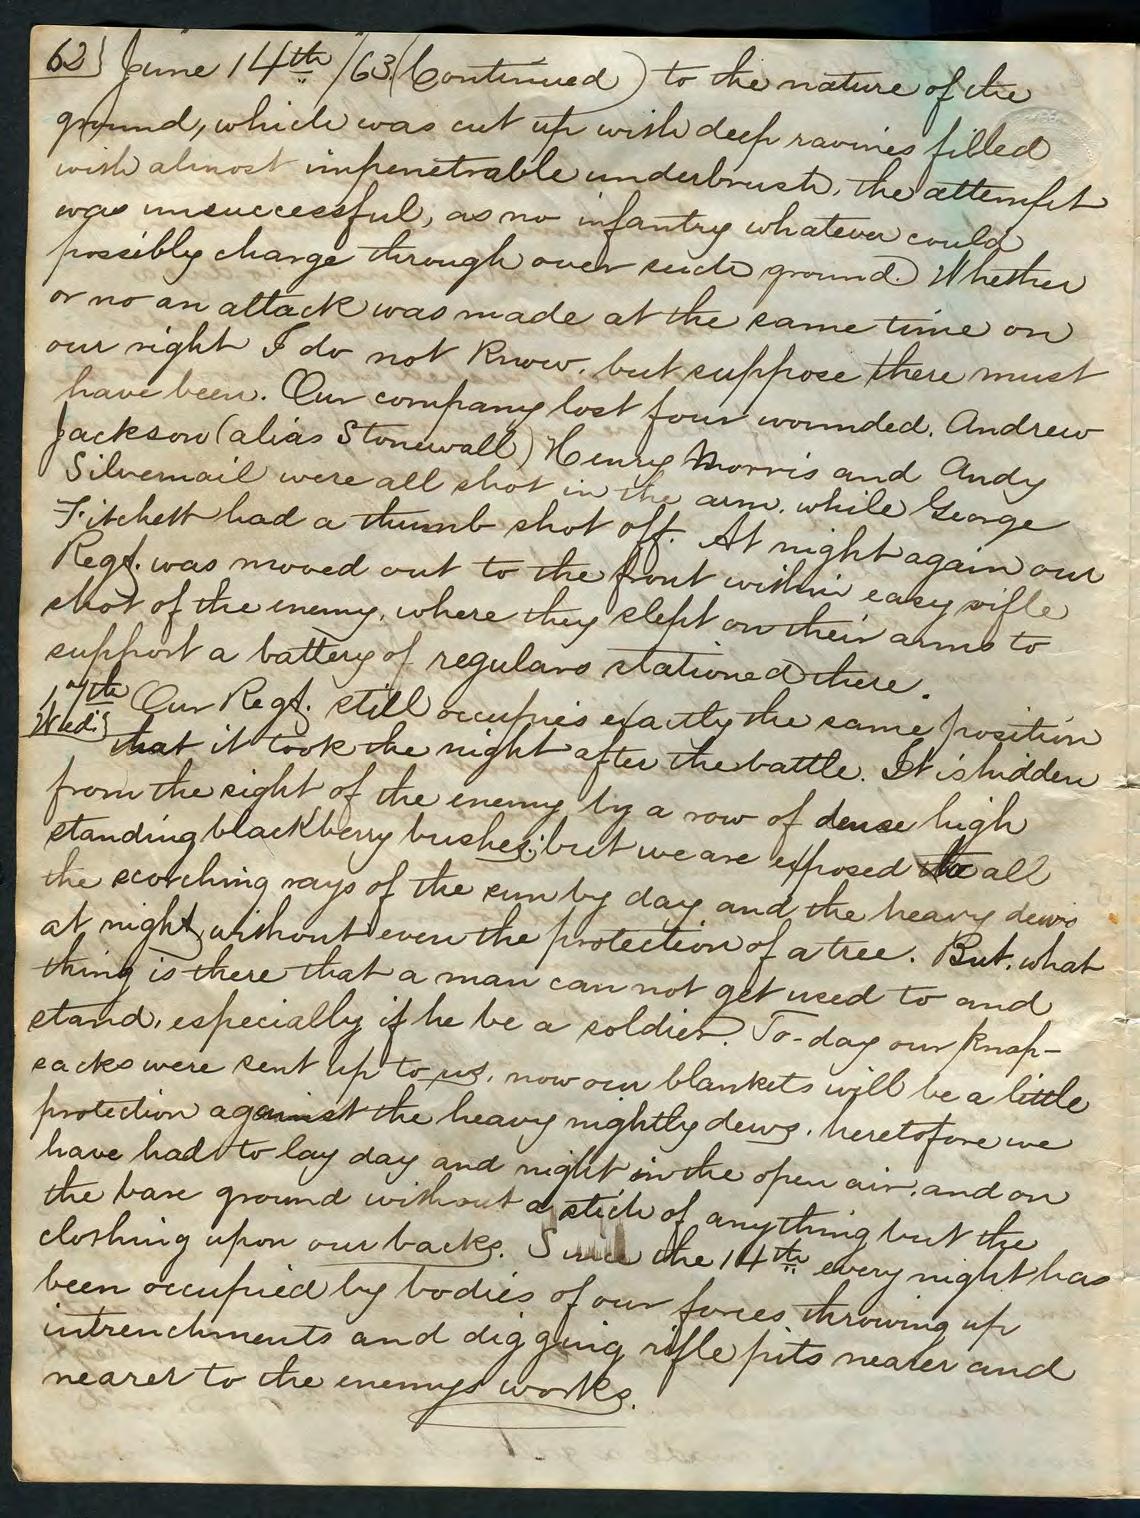 62} June 14th /63 (Continued) to the nature of the
ground, which was cut up with deep ravines filled
with almost impenetrable underbrush, the attempt
was unsuccessful, as no infantry whatever could
possibly charge through over such ground. Whether
or no an attack was made at the same time on
our right I do not know, but suppose there must
have been. Our company lost four wounded. Andrew
Jackson (alias Stonewall) Henry Morris and Andy
Silvernail were all shot in the arm, while George
Fitchett had a thumb shot off. At night again our
Regt. was moved out to the front within easy rifle
shot of the enemy, where they slept on their arms to
support a battery of regulars stationed there.
17th Our Regt. still occupies exactly the same position
Wed.} that it took the night after the battle. It is hidden
from the sight of the enemy by a row of dense high
standing blackberry bushes; but we are exposed to all
the scorching rays of the sun by day, and the heavy dews
at night, without even the protection of a tree. But, what
thing is there that a man can not get used to and
stand, especially if he be a soldier? To-day our knap-
sacks were sent up to us, now our blankets will be a little
protection against the heavy nightly dews, heretofore we
have had to lay day and night in the open air, and on
the bare ground without a stich of anything but the
clothing upon our backs. Since the 14th every night has
been occupied by bodies of our forces, throwing up
intrenchments and digging rifle pits nearer and
nearer to the enemys works.